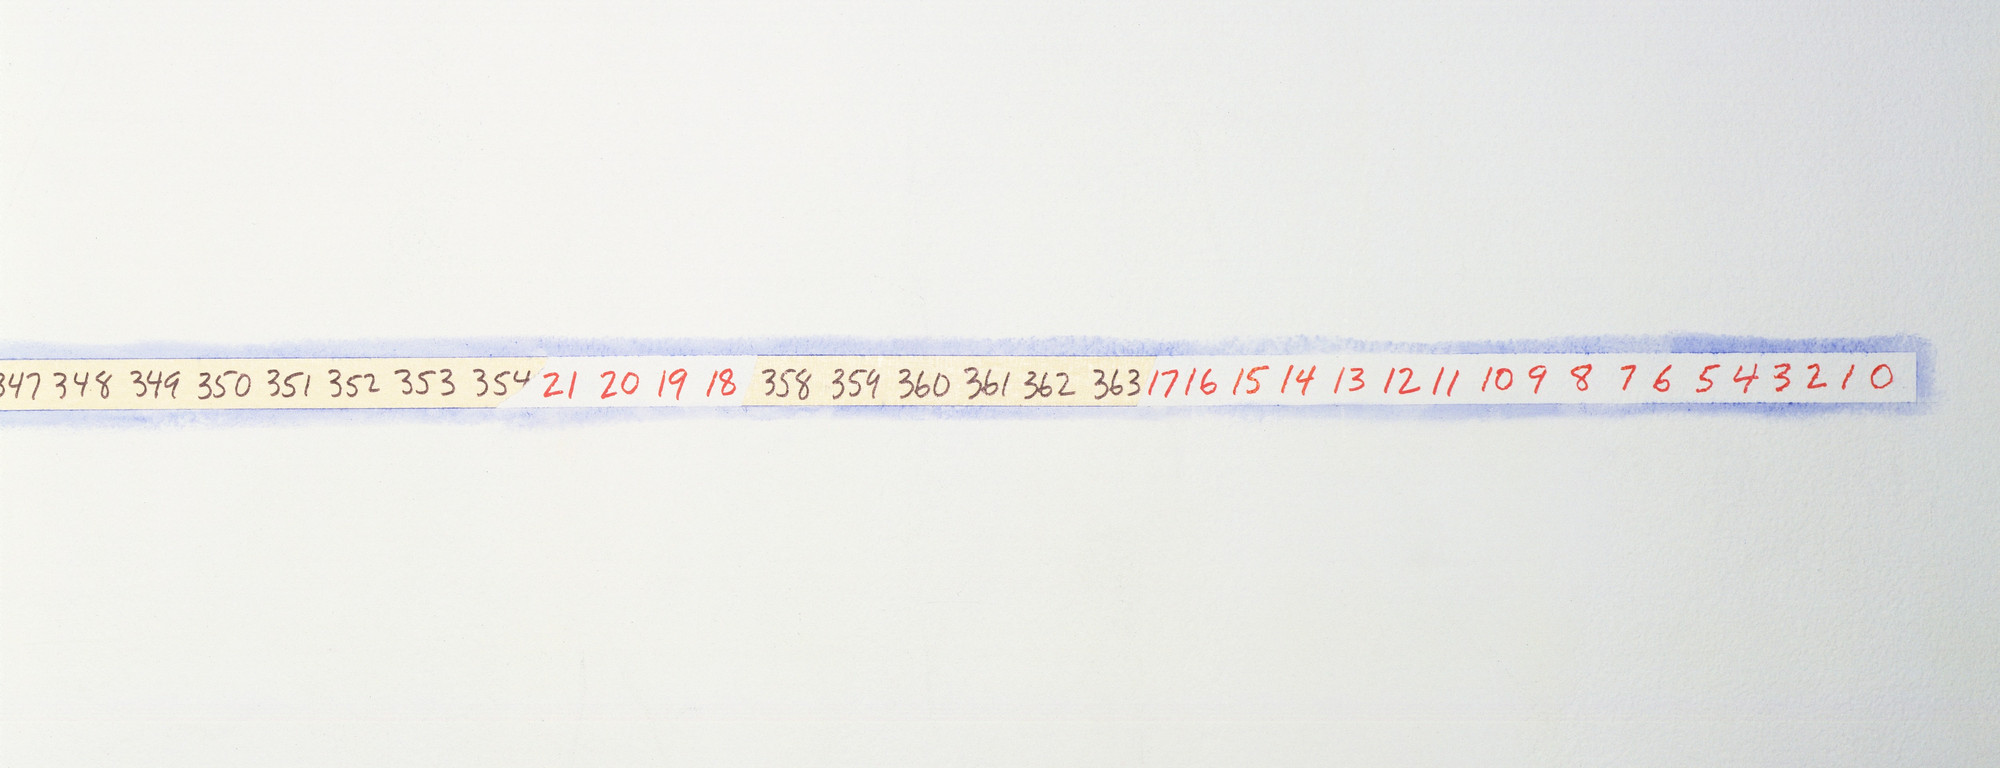 347 348 349 350 351 352 353 354 21 20 19 18 358 359 360 361 362 363 17 16 15 14 13 12 11 10 9 8 7 6 5 4 3 2 1 0